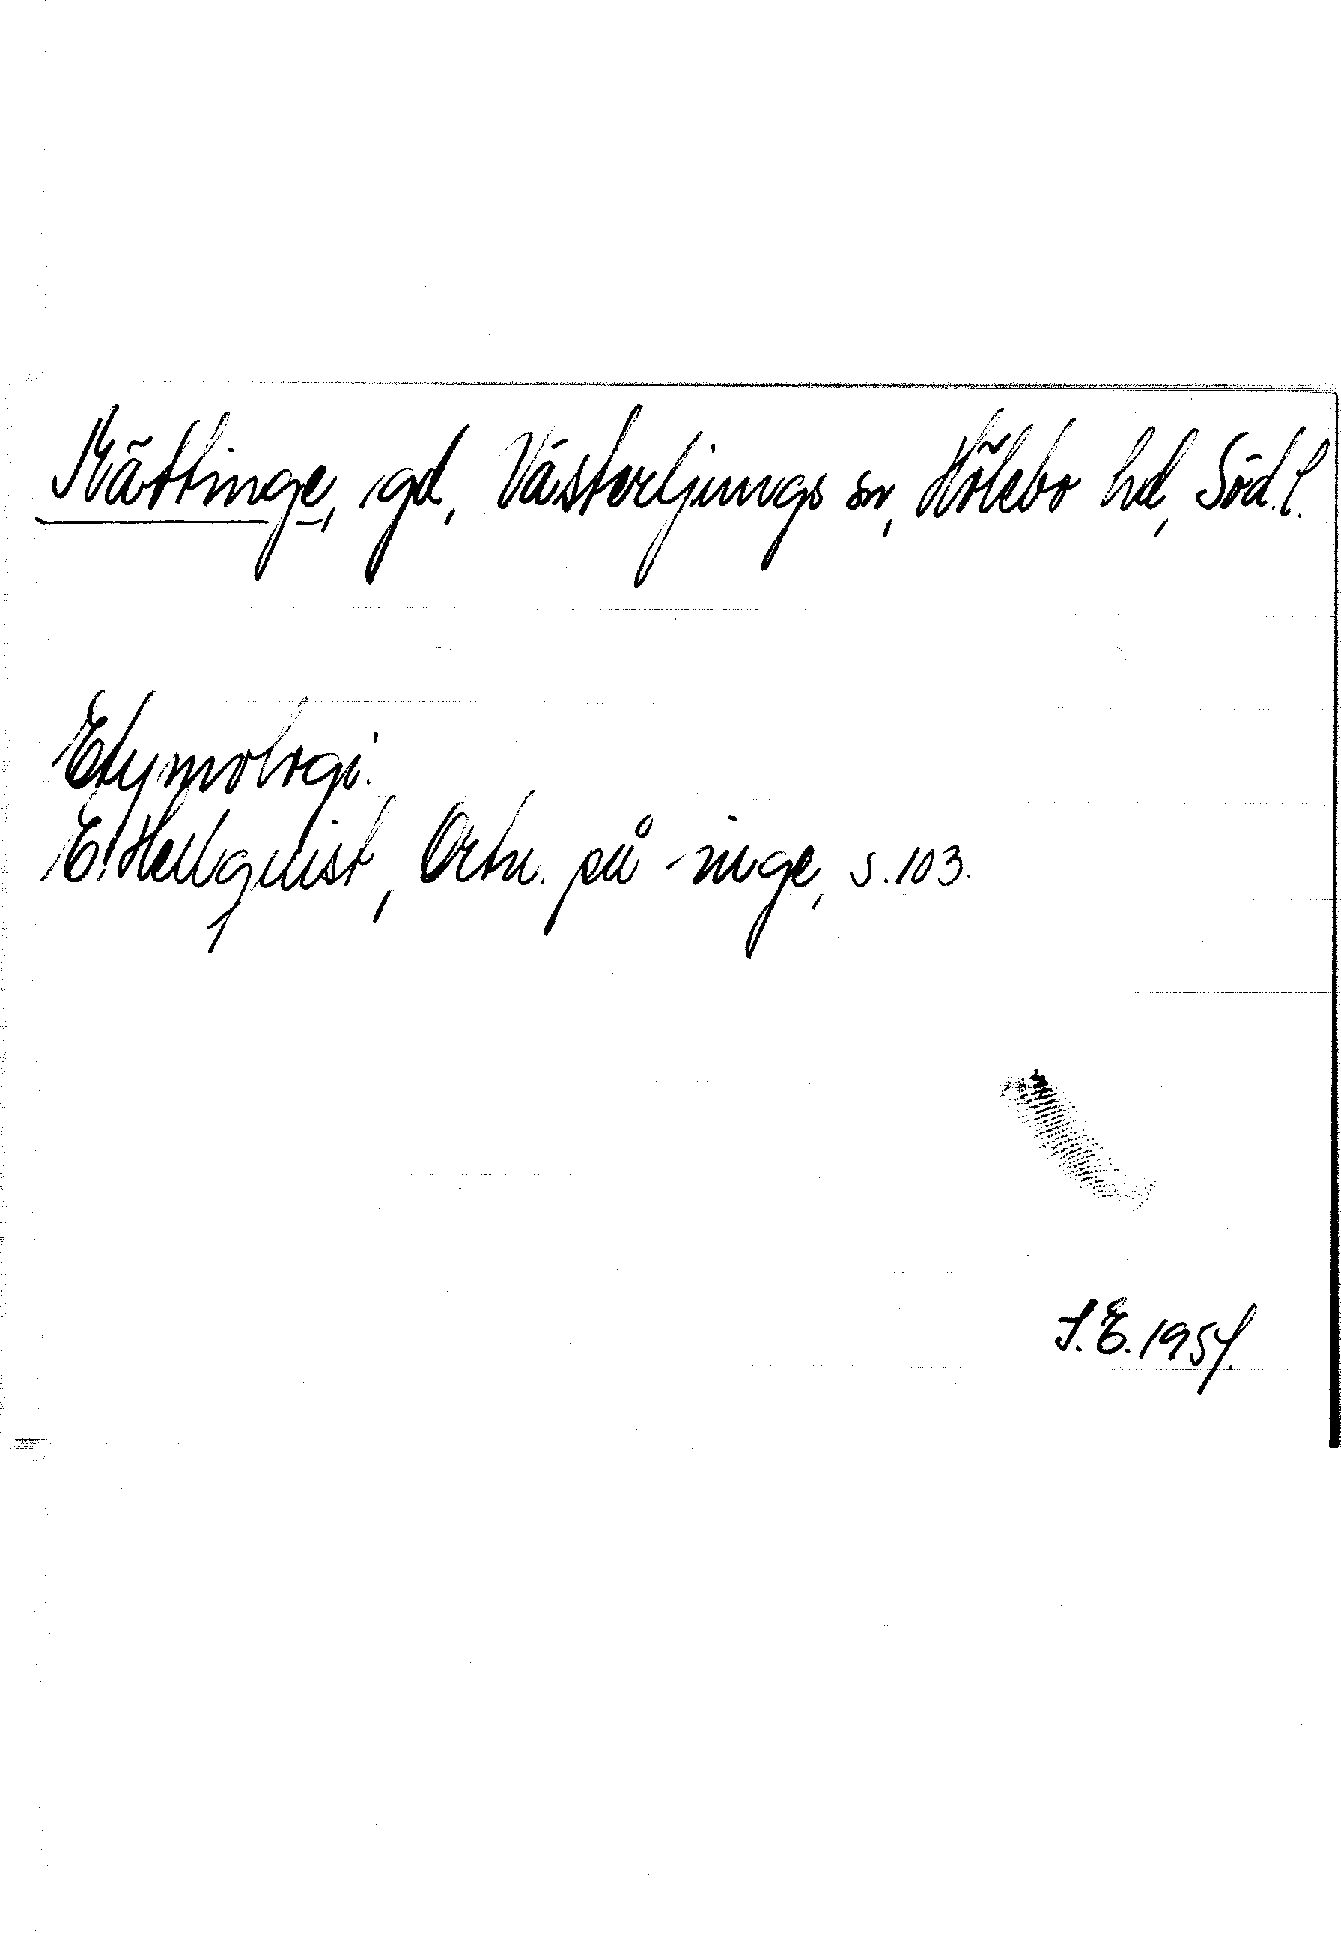 Mättinge, gd, Västerljungs sn, Hölebo hd, Söd.l.
Etymologi.
E. Hellquist, Ortn. på -inge, s. 103.
S.E. 1954.